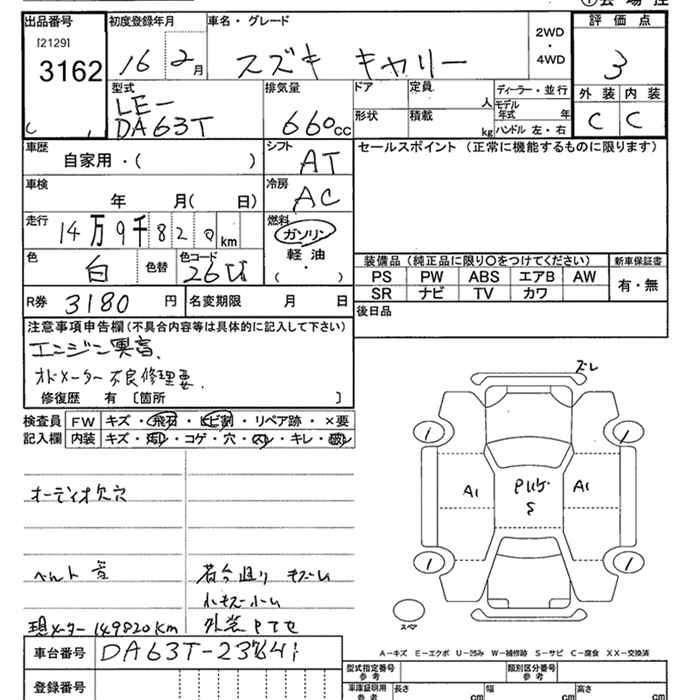 出品番号
[2129]
3162
初度登録年月
16 2月
車名・グレード
スズキ キャリー
2WD
・
4WD
評価点
3
外装 内装
C C
型式
LE-
DA63T
排気量
660cc
ドア
定員 人
ディーラー・並行
モデル年式 年
形状
積載 kg
ハンドル 左・右
車歴
自家用・( )
シフト
AT
セールスポイント(正常に機能するものに限ります)
車検
年 月( 日)
冷房
AC
走行
14万9千820km
燃料
ガソリン
・
軽油
( )
色
白
色替
色コード
26U
装備品(純正品に限り〇をつけてください)
新車保証書
PS PW ABS エアB AW
有・無
SR ナビ TV カワ
R券 3180 円
名変期限 月 日
後日品
注意事項申告欄(不具合内容等は具体的に記入して下さい)
エンジン異音.
オドメーター不良修理要.
修復歴 有 〔箇所 〕
検査員
記入欄
FW キズ・飛石・ヒビ割・リペア跡・×要
内装 キズ・汚レ・コゲ・穴・スレ・キレ・破レ
オーディオ欠穴
ベルト音
現メーター149820km
小キズ小凹
ズレ
1 1
A1 A1
S
1 1
スペア
A-キズ E-エクボ U-凹み W-補修跡 S-サビ C-腐食 XX-交換済
車台番号
登録番号
型式指定番号
参考
類別区分番号
参考
車庫証明用
参考
長さ cm
幅 cm
高さ cm